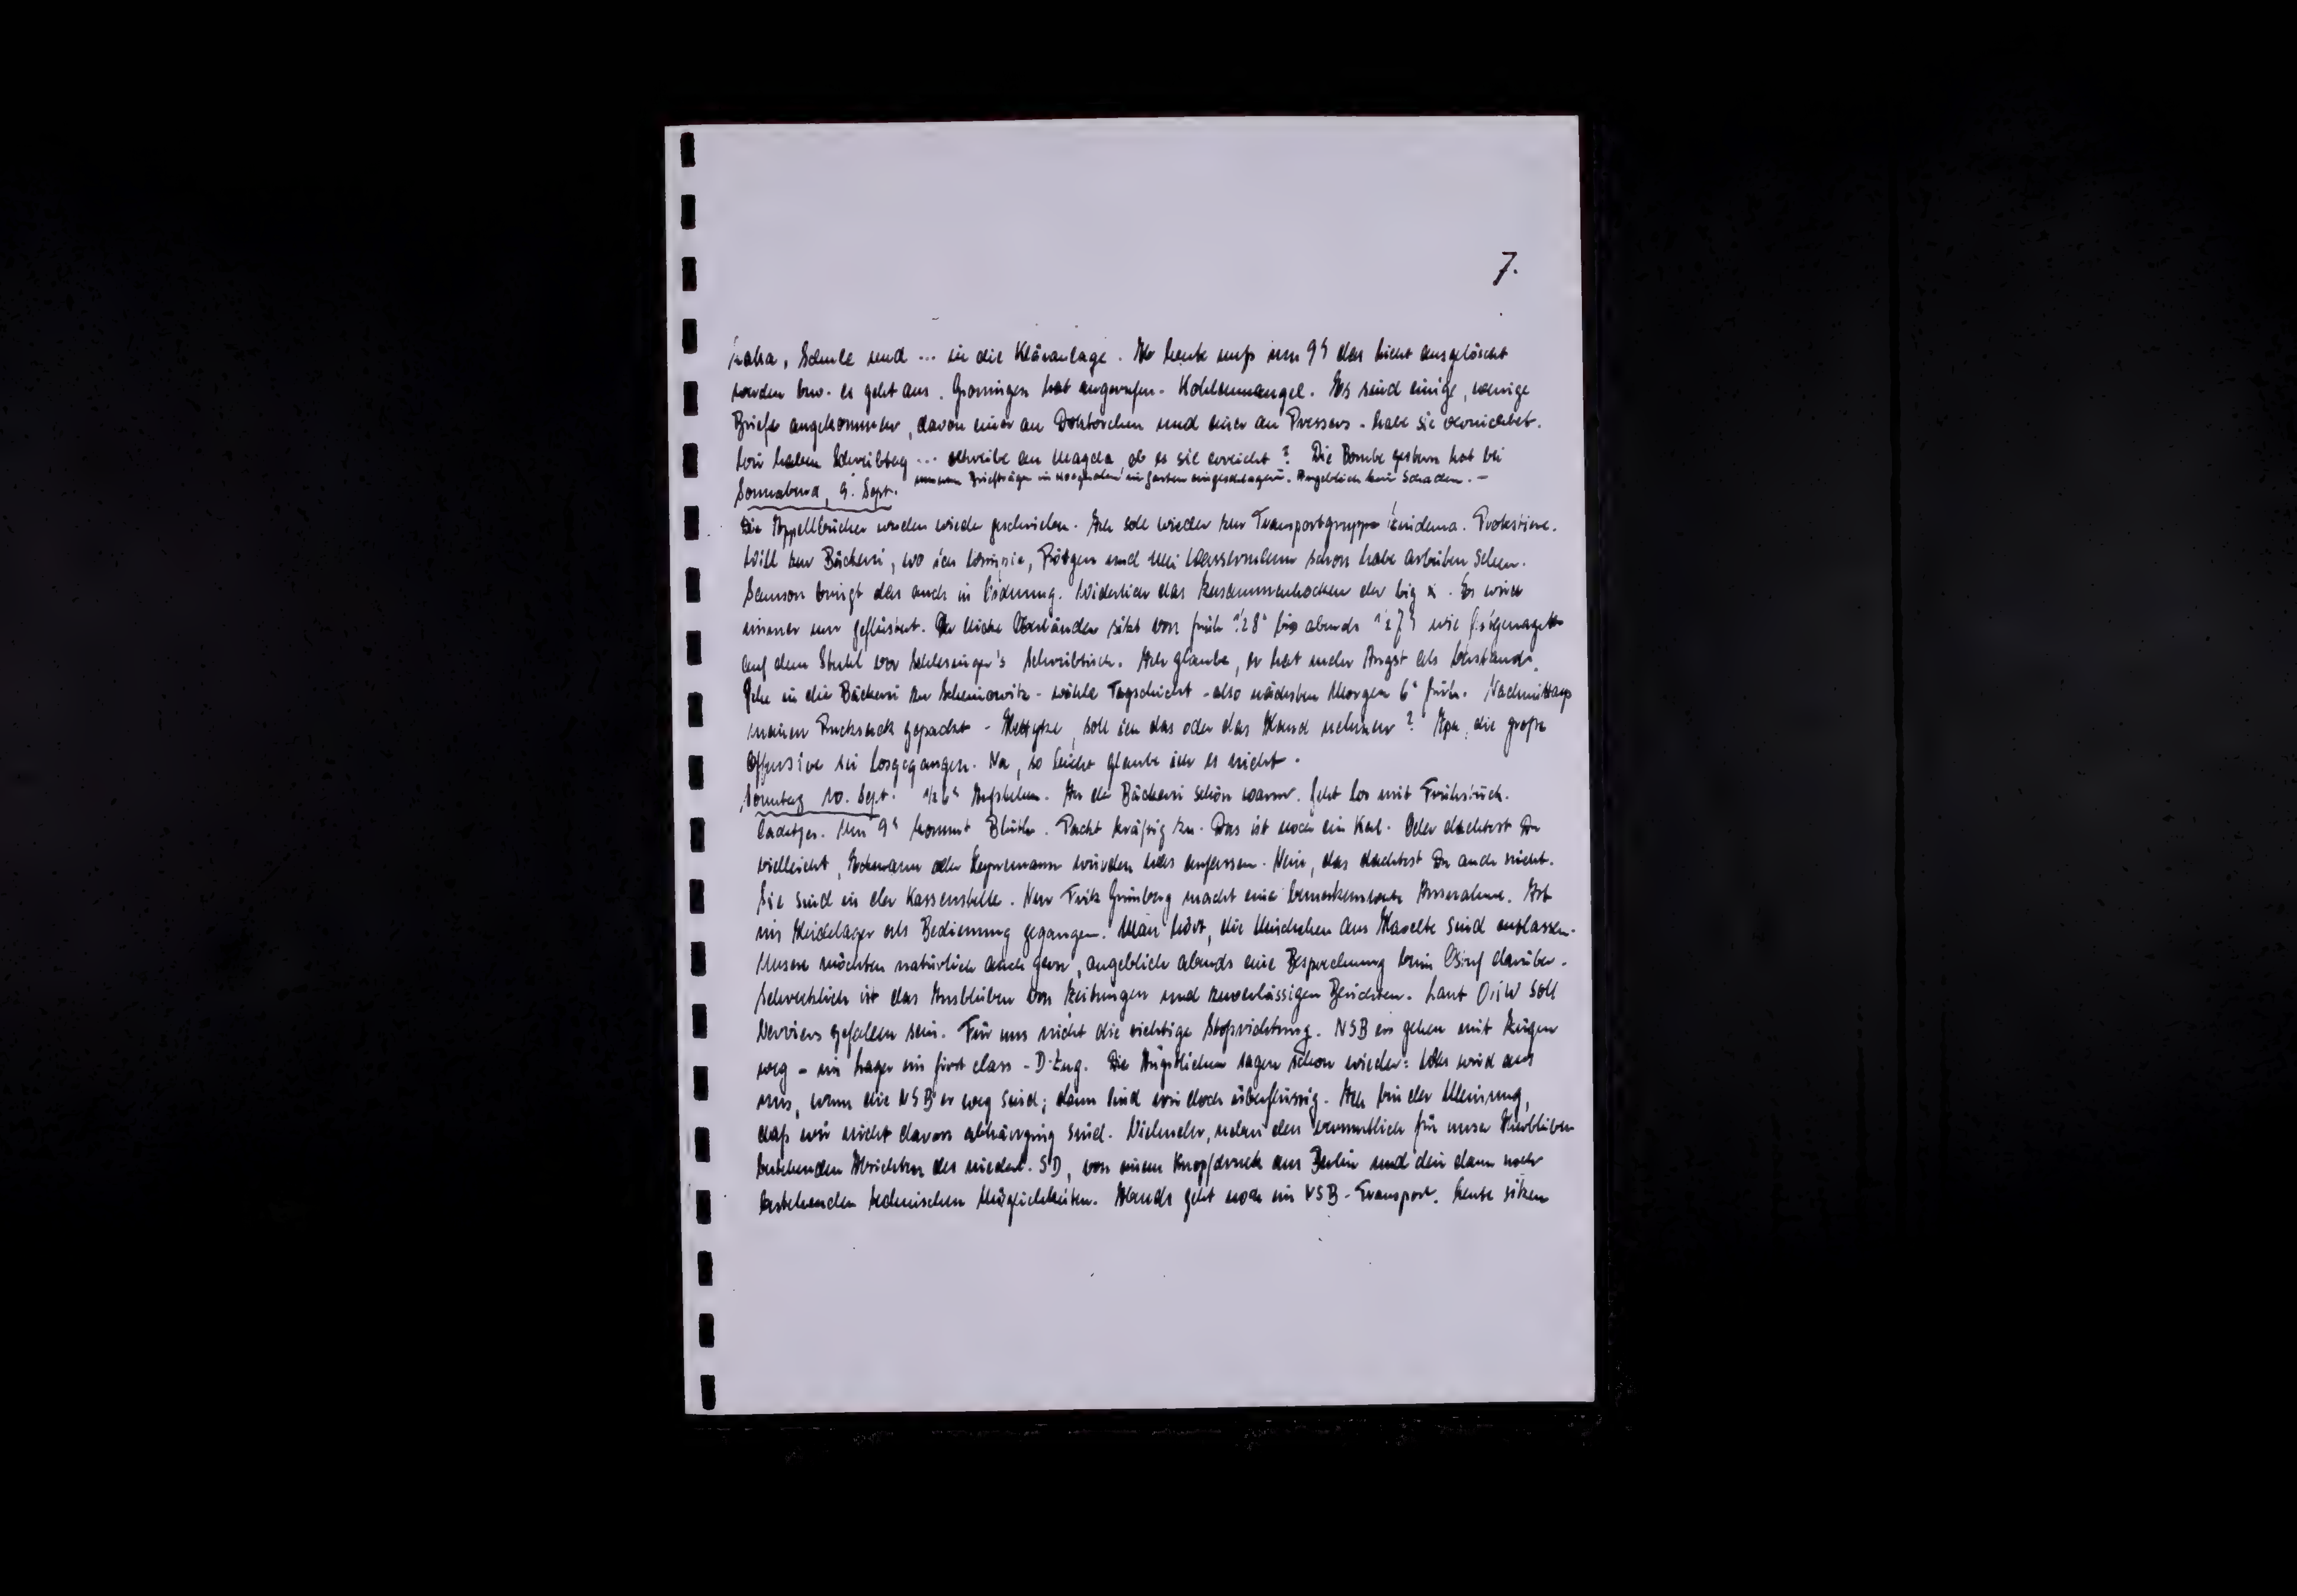 7.
haha, Schule und ... in die Kläranlage. Ab heute muß um 9h das Licht ausgelöscht
werden bzw. es geht aus. Groningen hat angerufen - Kohlenmangel. Es sind einige, wenige
Briefe angekommen, davon einer an Doktorchen und einer an Pressers - habe sie vernichtet.
Wir haben Schreibtag ... schreibe an Magda, ob es sie erreicht? Die Bombe gestern hat bei
unserm Briefträger in Hooghalen im Garten eingeschlagen. Angeblich kein Schaden. -
Sonnabend, 9. Sept.
Die Appellbücher werden wieder geschrieben. Ich soll wieder zur Transportgruppe Zuidema. Protestiere.
Will zur Bäckerei, wo ich Röttgen und Uli Wassermann schon habe arbeiten sehen.
Samson bringt das auch in Ordnung. Widerlich das Zusammenhocken der big x. Es wird
immer nur geflüstert. Der dicke sitzt von früh ½8h bis abends ½7h wie festgenagelt
auf dem Stuhl vor Schlesinger's Schreibtisch. Ich glaube, er hat mehr Angst als Verstand.
Gehe in die Bäckerei zu Scheinowitz - wähle Tagschicht - also nächsten Morgen 6h früh. Nachmittags
meinen Rucksack gepackt - soll ich das oder das Hemd nehmen? Ipa, die große
Offensive sei losgegangen. Na, so leicht glaube ich es nicht.
Sonntag 10. Sept. ½6h Aufstehen. In der Bäckerei schön warm. Geht los mit Frühstück.
Cadetjes. Um 9h kommt Blüth. Packt kräftig zu. Das ist noch ein Kerl. Oder dachtest Du
vielleicht, Todtmann oder Heynemann würden was anfassen. Nein, das dachtest Du auch nicht.
Sie sind in der Kassenstelle. Nur Fritz Grünberg macht eine bemerkenswerte Ausnahme. Ist
ins Heidelager als Bedienung gegangen. Man hört, die Mädchen aus Havelte sind entlassen.
Unsere möchten natürlich auch gern, angeblich abends eine Besprechung beim Ostuf darüber.
Schrecklich ist das Ausbleiben von Zeitungen und zuverlässigen Berichten. Laut O.i.W soll
Verviers gefallen sein. Für uns nicht die richtige Stoßrichtung. NSBer gehen mit Zügen
weg - im Lager ein first class - D-Zug. Die Ängstlichen sagen schon wieder: Was wird aus
uns, wenn die NSBer weg sind; dann sind wir doch überflüssig. Ich bin der Meinung,
daß wir nicht davon abhängig sind. Vielmehr, neben den vermutlich für unser Hierbleiben
bestehenden Absichten des niederl. SD, von einem Knopfdruck aus Berlin und den dann noch
bestehenden technischen Möglichkeiten. Abends geht noch ein NSB-Transport. Heute sitzen